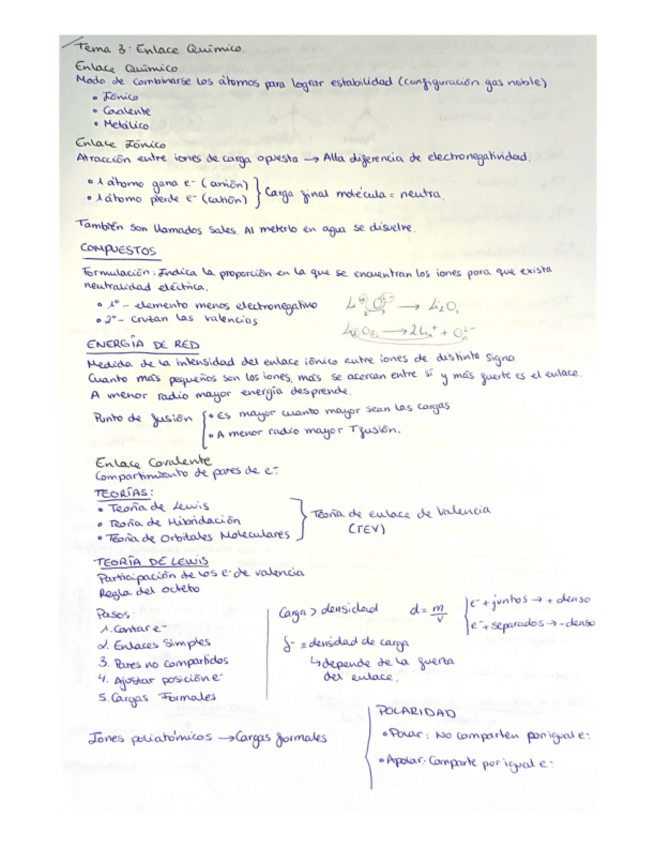 Tema 3: Enlace Químico.
Enlace Químico
Modo de combinarse los átomos para lograr estabilidad (configuración gas noble)
• Iónico
• Covalente
• Metálico
Enlace Iónico
Atracción entre iones de carga opuesta → Alta diferencia de electronegatividad.
• 1 átomo gana e⁻ (anión)
• 1 átomo pierde e⁻ (catión)
Carga final molécula = neutra.
También son llamados sales. Al meterlo en agua se disuelve.
COMPUESTOS
Formulación: Indica la proporción en la que se encuentran los iones para que exista
neutralidad eléctrica.
• 1º - elemento menos electronegativo
• 2º - cruzan las valencias
→ Li₂O₁
ENERGÍA DE RED
Medida de la intensidad del enlace iónico entre iones de distinto signo.
Cuanto más pequeños son los iones, más se acercan entre sí y más fuerte es el enlace.
A menor radio mayor energía desprende.
Punto de fusión
• Es mayor cuanto mayor sean las cargas
• A menor radio mayor Tfusión.
Enlace Covalente
Compartimiento de pares de e⁻.
TEORÍAS:
• Teoría de Lewis
• Teoría de Hibridación
• Teoría de Orbitales Moleculares
Teoría de enlace de Valencia
(TEV)
TEORÍA DE LEWIS
Participación de los e⁻ de valencia
Regla del octeto
Pasos:
1. Contar e⁻
2. Enlaces Simples
3. Pares no compartidos
4. Ajustar posición e⁻
5. Cargas Formales
Carga > densidad d = m/v
e⁻ + juntos → + denso
e⁻ + separados → - denso
δ⁻ = densidad de carga
↳ depende de la fuerza
del enlace.
Iones poliatómicos → Cargas formales
POLARIDAD
• Polar: No comparten por igual e⁻.
• Apolar: Comparte por igual e⁻.